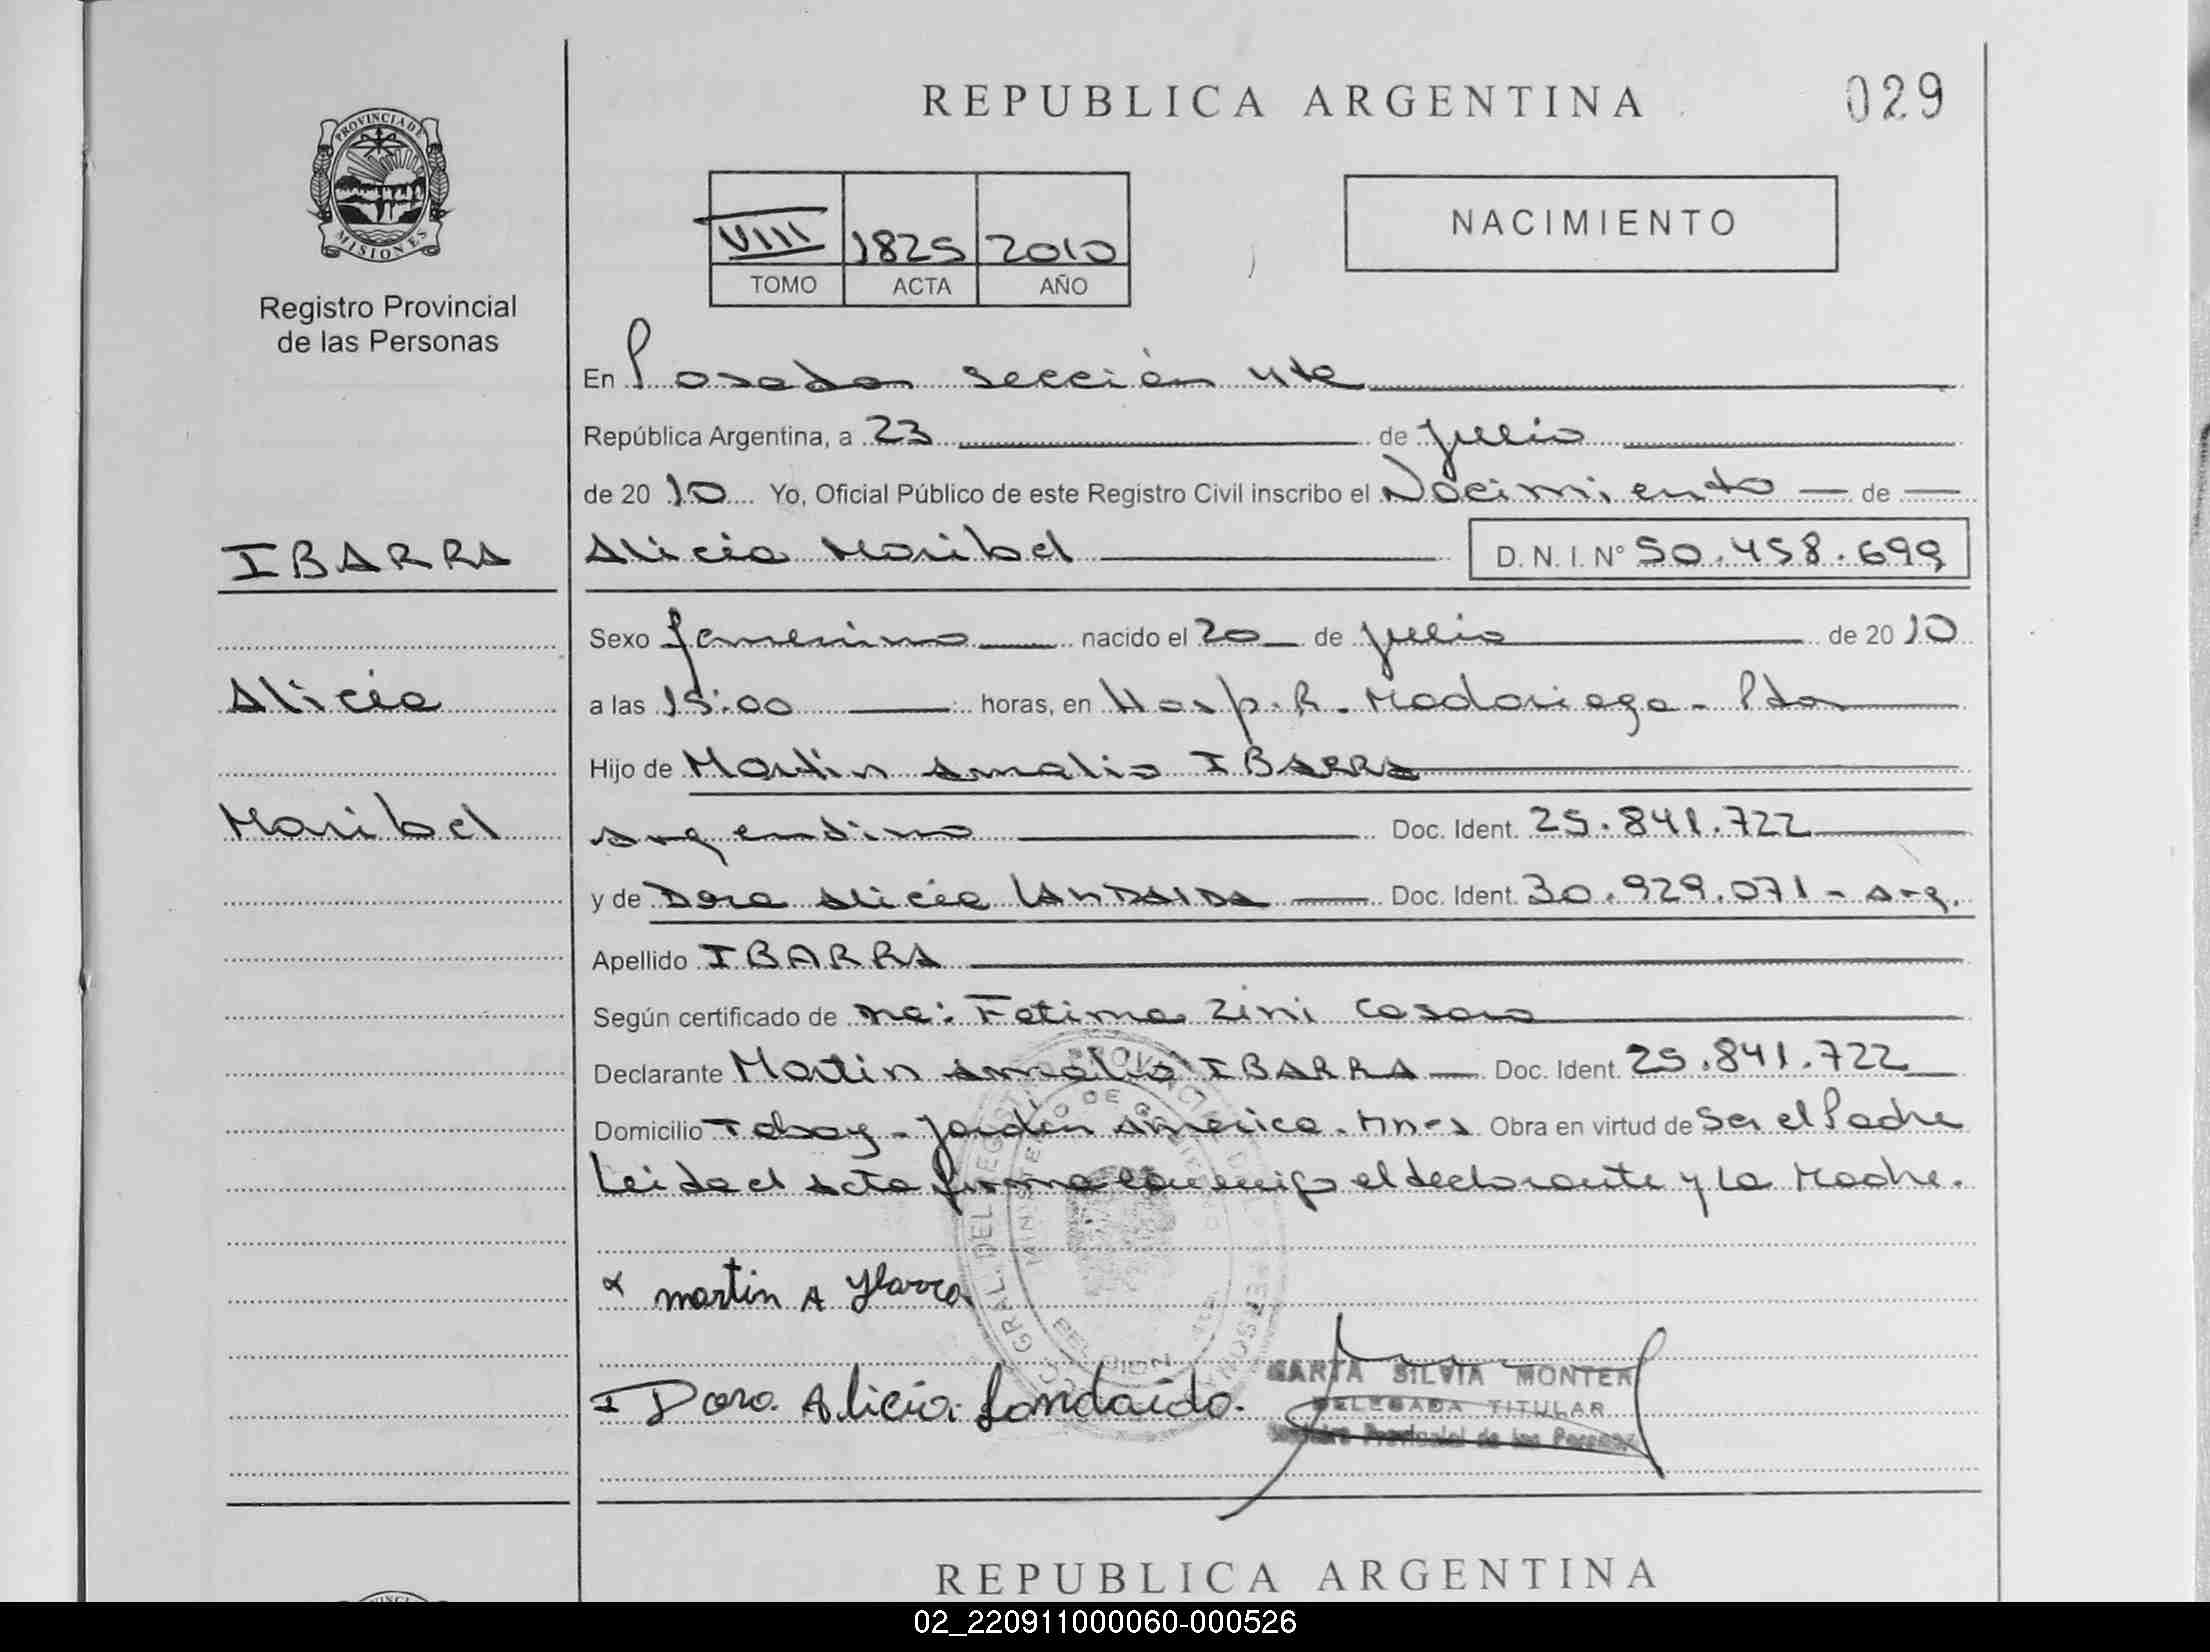 REPUBLICA ARGENTINA
029
PROVINCIA DE
MISIONES
Registro Provincial
de las Personas
VIII 1825 2010
TOMO ACTA AÑO
NACIMIENTO
En Posadas sección 4ta
República Argentina, a 23 de julio
de 20 10 Yo, Oficial Público de este Registro Civil inscribo el Nacimiento de
IBARRA
Alicia Maribel D. N. I. N° 50.458.699
Sexo femenino nacido el 20 de julio de 20 10
Alicia
a las 15:00 horas, en Hosp. R. Madariaga - Pdas
Hijo de Martin Amalio IBARRA
Maribel
argentino Doc. Ident. 25.841.722
y de Dora Alicia LANDAIDA Doc. Ident. 30.929.071 - arg.
Apellido IBARRA
Según certificado de Fatima Zini
Declarante Martin Amalio IBARRA Doc. Ident. 25.841.722
Domicilio Tabay - Jardin America - Mnes Obra en virtud de Ser el Padre
Leida el acta firma conmigo el declarante y la Madre.
martin A Ybarra
Dora Alicia Landaida.
MARTA SILVIA MONTER
DELEGADA TITULAR
Registro Provincial de las Personas
REPUBLICA ARGENTINA
02_220911000060-000526